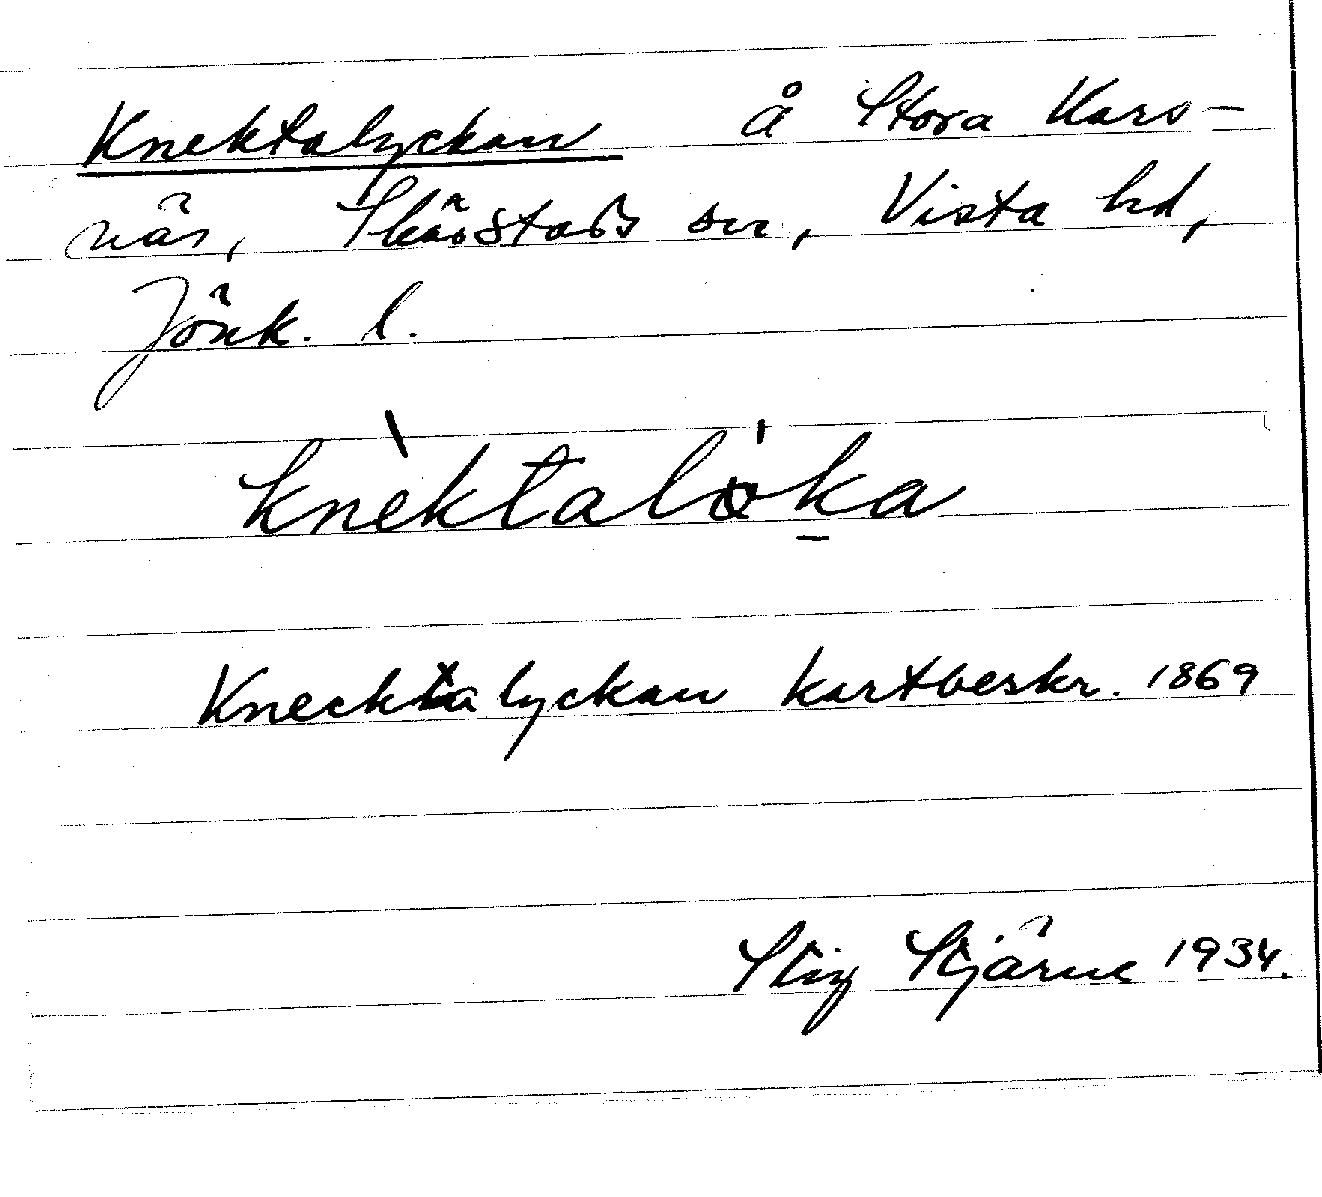 Knektalyckan å Stora Kars-
näs, Skärstads sn, Vista hd,
Jönk. l.
knèktalö́ka
Kneckta lyckan kartbeskr. 1869
Stig Stjärne 1934.